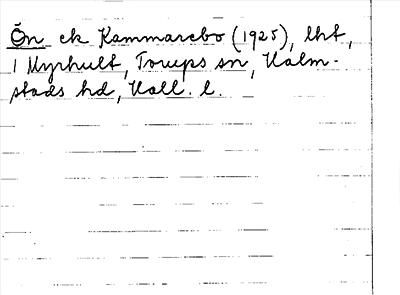 Ön ek Kammarebo (1925), lht,
i Myrhult, Torups sn, Halm-
stads hd, Hall. l.